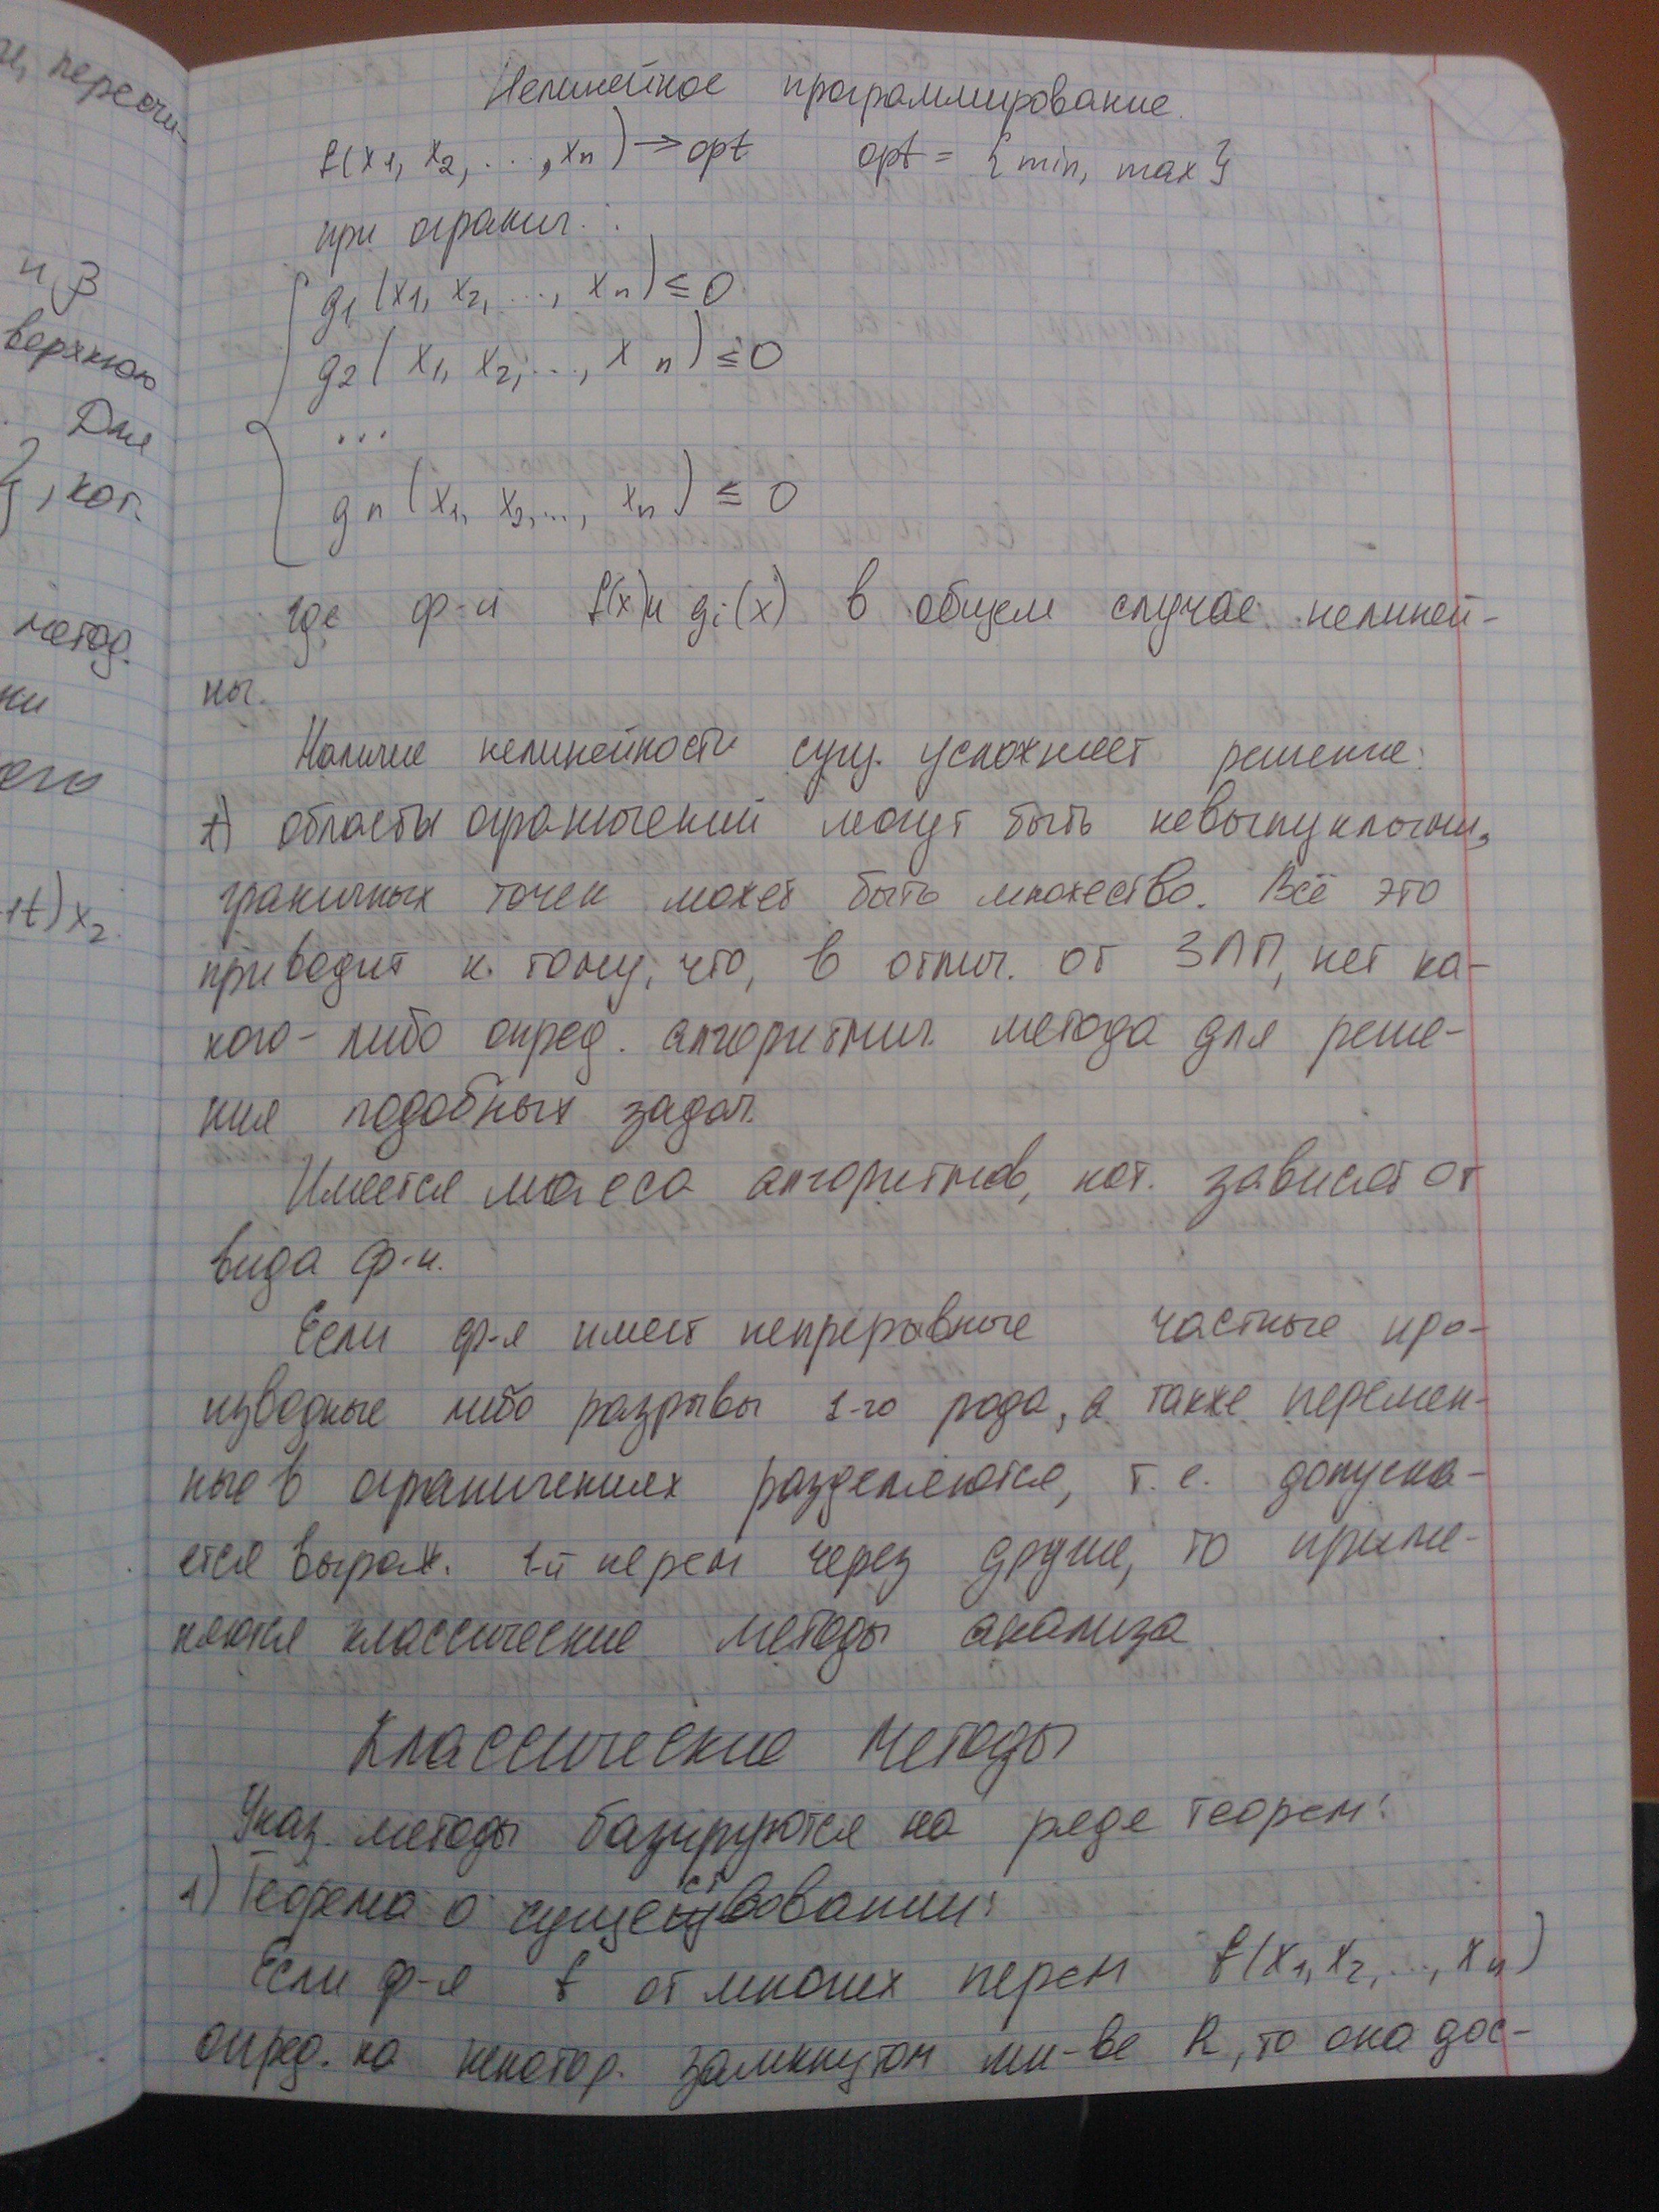 и, пересчи-
и β
верхнюю
Для
}, кот.
метод.
ки
ого
-1t)x2.
Нелинейное программирование.
f(x1, x2, ..., xn) → opt opt = {min, max}
при огранич.:
g1(x1, x2, ..., xn) ≤ 0
g2(x1, x2, ..., xn) ≤ 0
...
gn(x1, x2, ..., xn) ≤ 0
где ф-и f(x) и gi(x) в общем случае нелиней-
ны.
Наличие нелинейности сущ. усложняет решение:
1) области ограничений могут быть невыпуклыми,
граничных точек может быть множество. Всё это
приводит к тому, что, в отлич. от ЗЛП, нет ка-
кого-либо опред. алгоритмич. метода для реше-
ния подобных задач.
Имеется масса алгоритмов, кот. зависят от
вида ф-и.
Если ф-я имеет непрерывные частные про-
изводные либо разрывы 1-го рода, а также перемен-
ные в ограничениях разделяются, т.е. допуска-
ется выраж. 1-й перем через другие, то приме-
няются классические методы анализа
Классические методы
Указ. методы базируются на ряде теорем:
1) Теорема о существовании:
Если ф-я f от многих перем f(x1, x2, ..., xn)
опред. на некотор. замкнутом мн-ве R, то она дос-